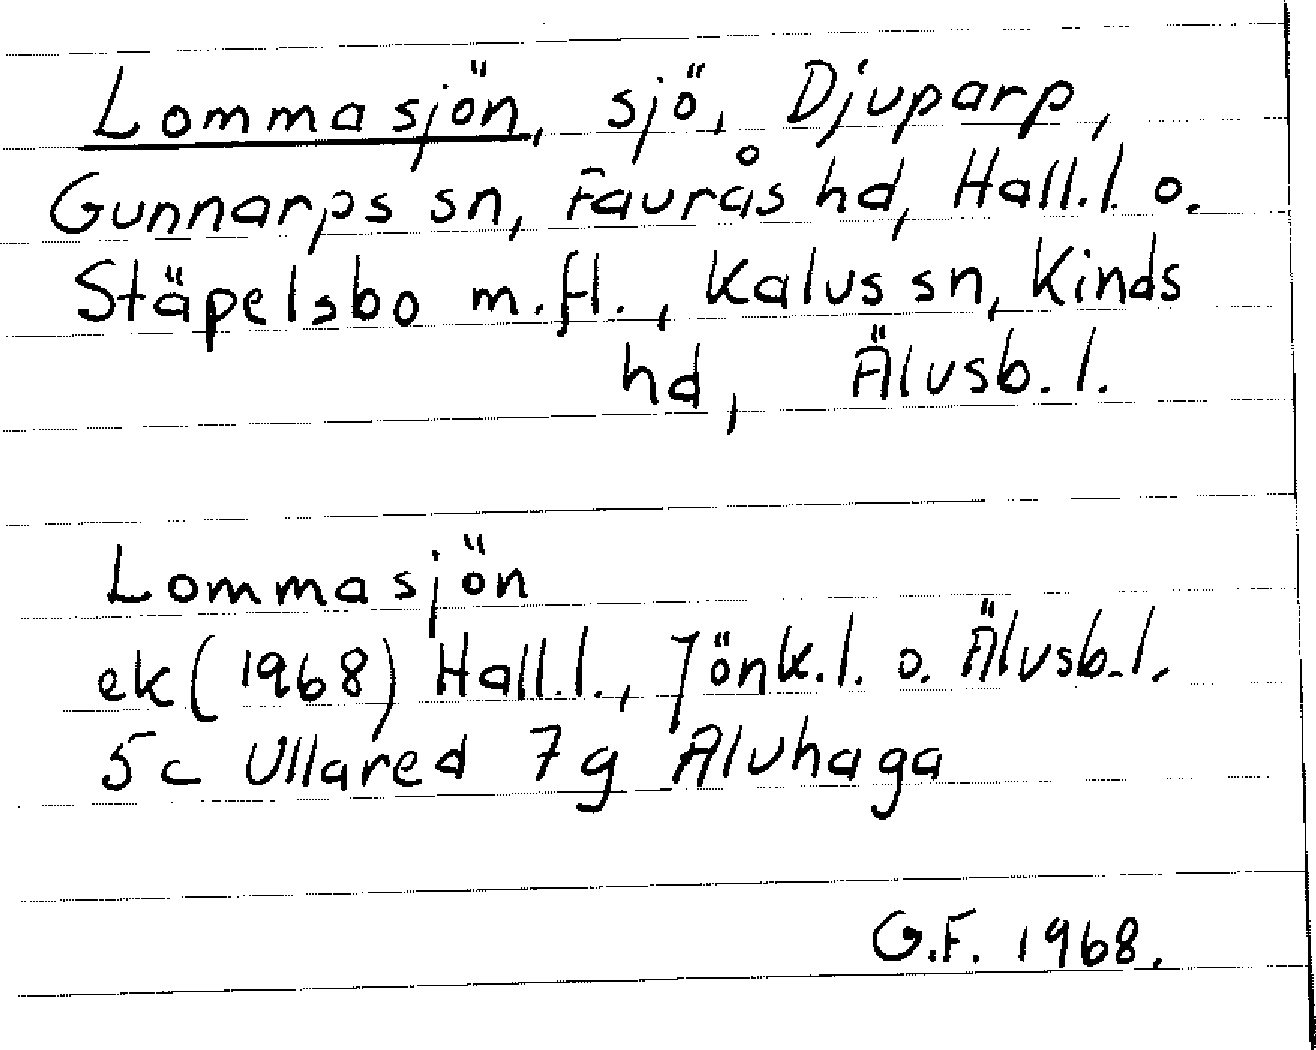 Lommasjön, sjö, Djuparp,
Gunnarps sn, Faurås hd, Hall.l. o.
Stäpelsbo m.fl., Kalvs sn, Kinds
hd, Älvsb. l.
Lommasjön
ek (1968) Hall.l., Jönk.l. o. Älvsb.l.
5c Ullared 7g Älvhaga
G.F. 1968.